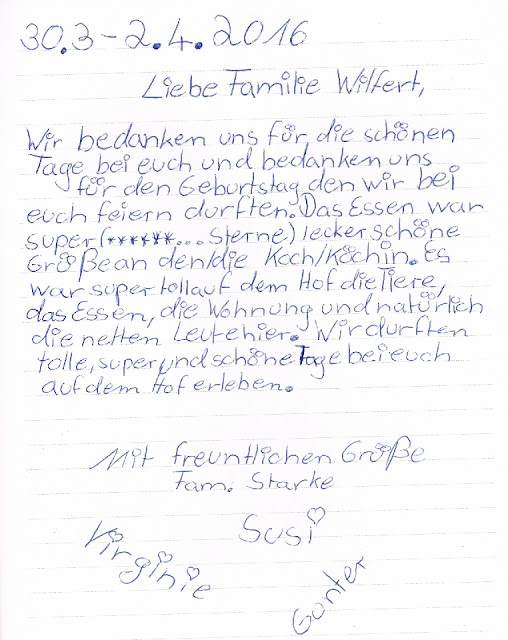 30.3-2.4.2016
Liebe Familie Wilfert,
Wir bedanken uns für die schönen
Tage bei euch und bedanken uns
für den Geburtstag den wir bei
euch feiern durften. Das Essen war
super (******... Sterne) lecker schöne
Größe an den/die Koch/Köchin. Es
war super toll auf dem Hof die Tiere,
das Essen, die Wohnung und natürlich
die netten Leute hier. Wir durften
tolle, super und schöne Tage bei euch
auf dem Hof erleben.
Mit freuntlichen Größe
Fam. Starke
Virginie Susi Gunter